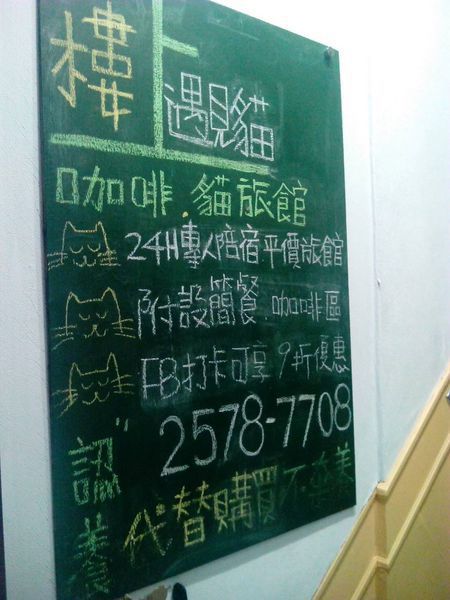 樓上
遇見貓
咖啡.貓旅館
24H專人陪宿平價旅館
附設簡餐.咖啡區
FB打卡可享9折優惠
2578-7708
"認養
代替購買不棄養